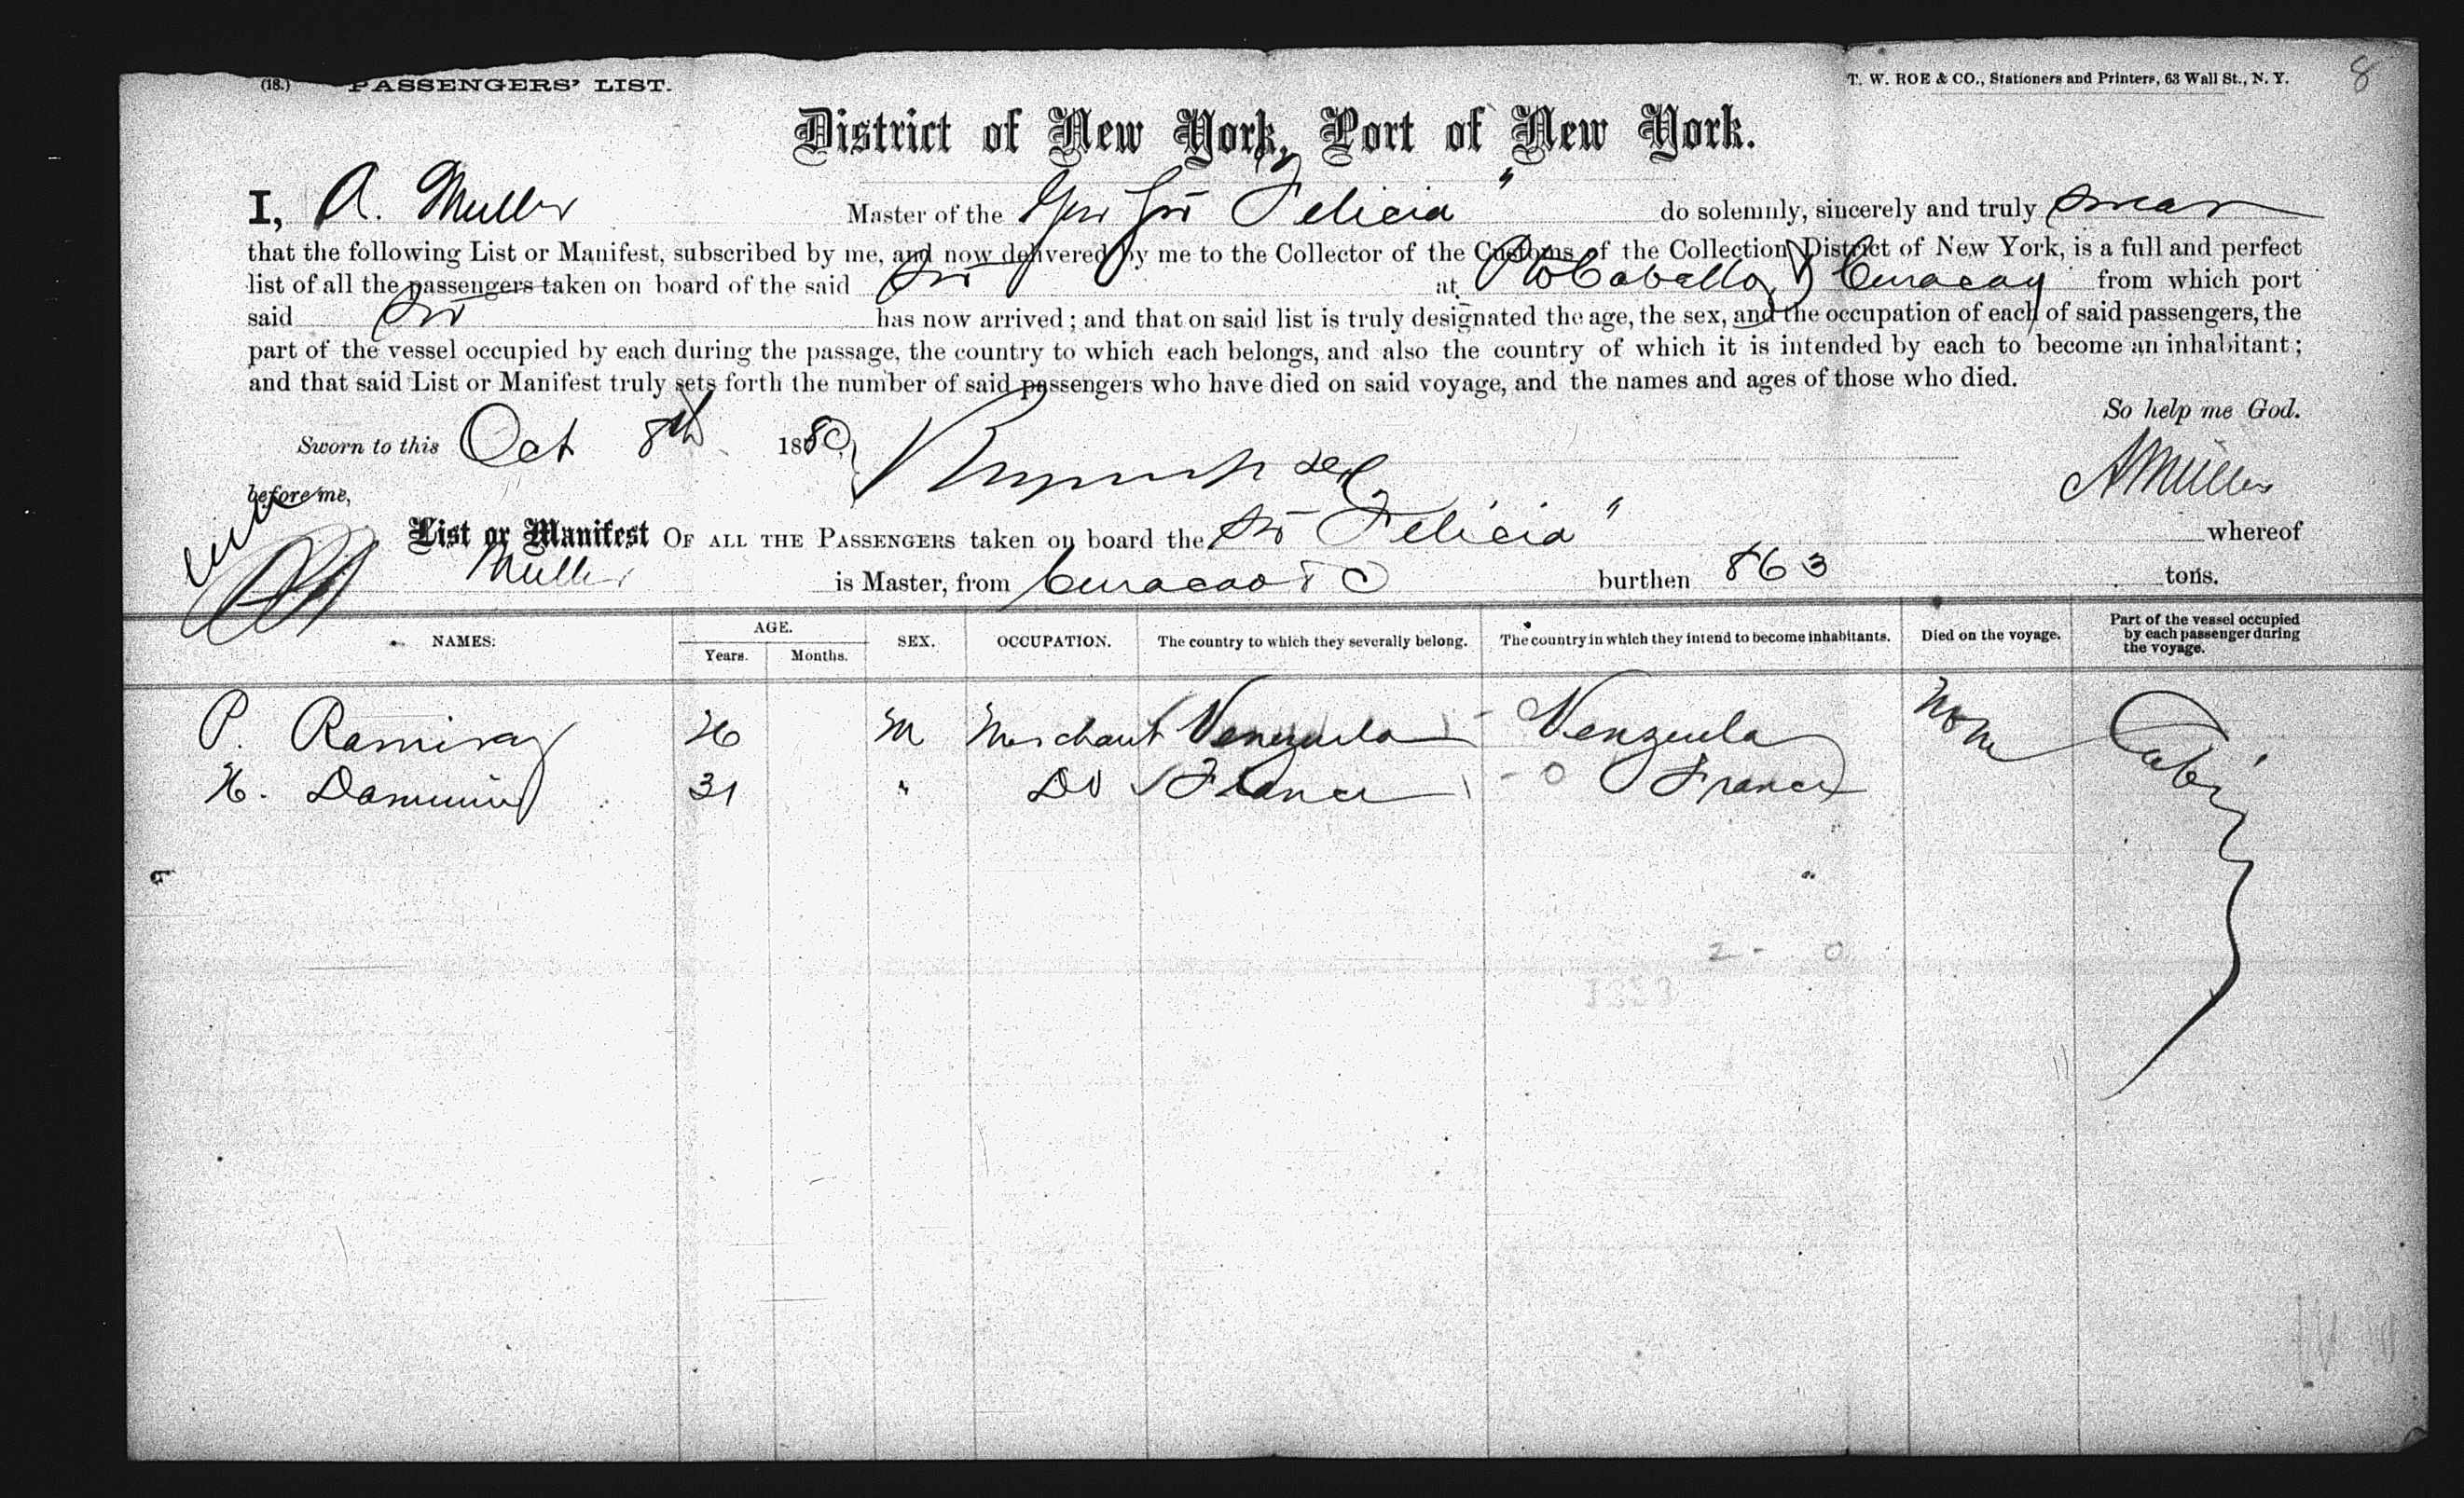 (18.) PASSENGERS' LIST.
T. W. ROE & CO., Stationers and Printers, 63 Wall St., N. Y. 8
District of New York, Port of New York.
I, A. Muller Master of the "Felicia" do solemnly, sincerely and truly swear
that the following List or Manifest, subscribed by me, and now delivered by me to the Collector of the Customs of the Collection District of New York, is a full and perfect
list of all the passengers taken on board of the said Str at Pto Cabello & Curacay from which port
said Str has now arrived; and that on said list is truly designated the age, the sex, and the occupation of each of said passengers, the
part of the vessel occupied by each during the passage, the country to which each belongs, and also the country of which it is intended by each to become an inhabitant;
and that said List or Manifest truly sets forth the number of said passengers who have died on said voyage, and the names and ages of those who died.
So help me God.
Sworn to this Oct 8th 1880,
before me,
AMüller
List or Manifest OF ALL THE PASSENGERS taken on board the Str Felicia" whereof
Muller is Master, from Curacao burthen 863 tons.
NAMES. AGE. Years. Months. SEX. OCCUPATION. The country to which they severally belong. The country in which they intend to become inhabitants. Died on the voyage. Part of the vessel occupied by each passenger during the voyage.
P. Ramiray 26 M Merchant Venezuela - Venzuela None Cabin
H. 31 " Do France - 0 France
2 - 0